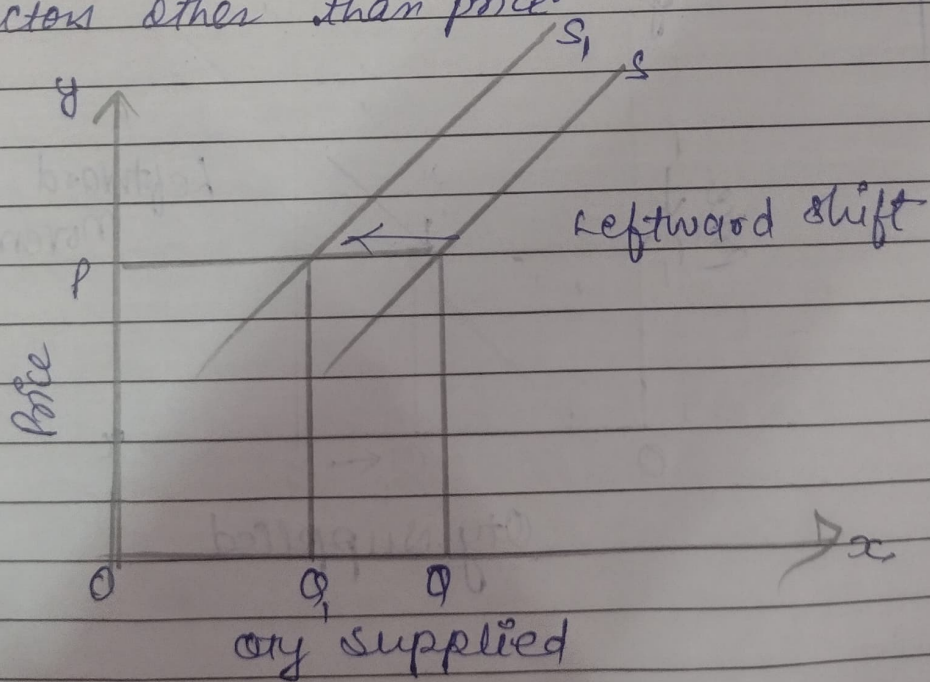 ctors other than price
S₁
S
y
Leftward shift
P
Price
O
Q₁
Q
x
Qty supplied